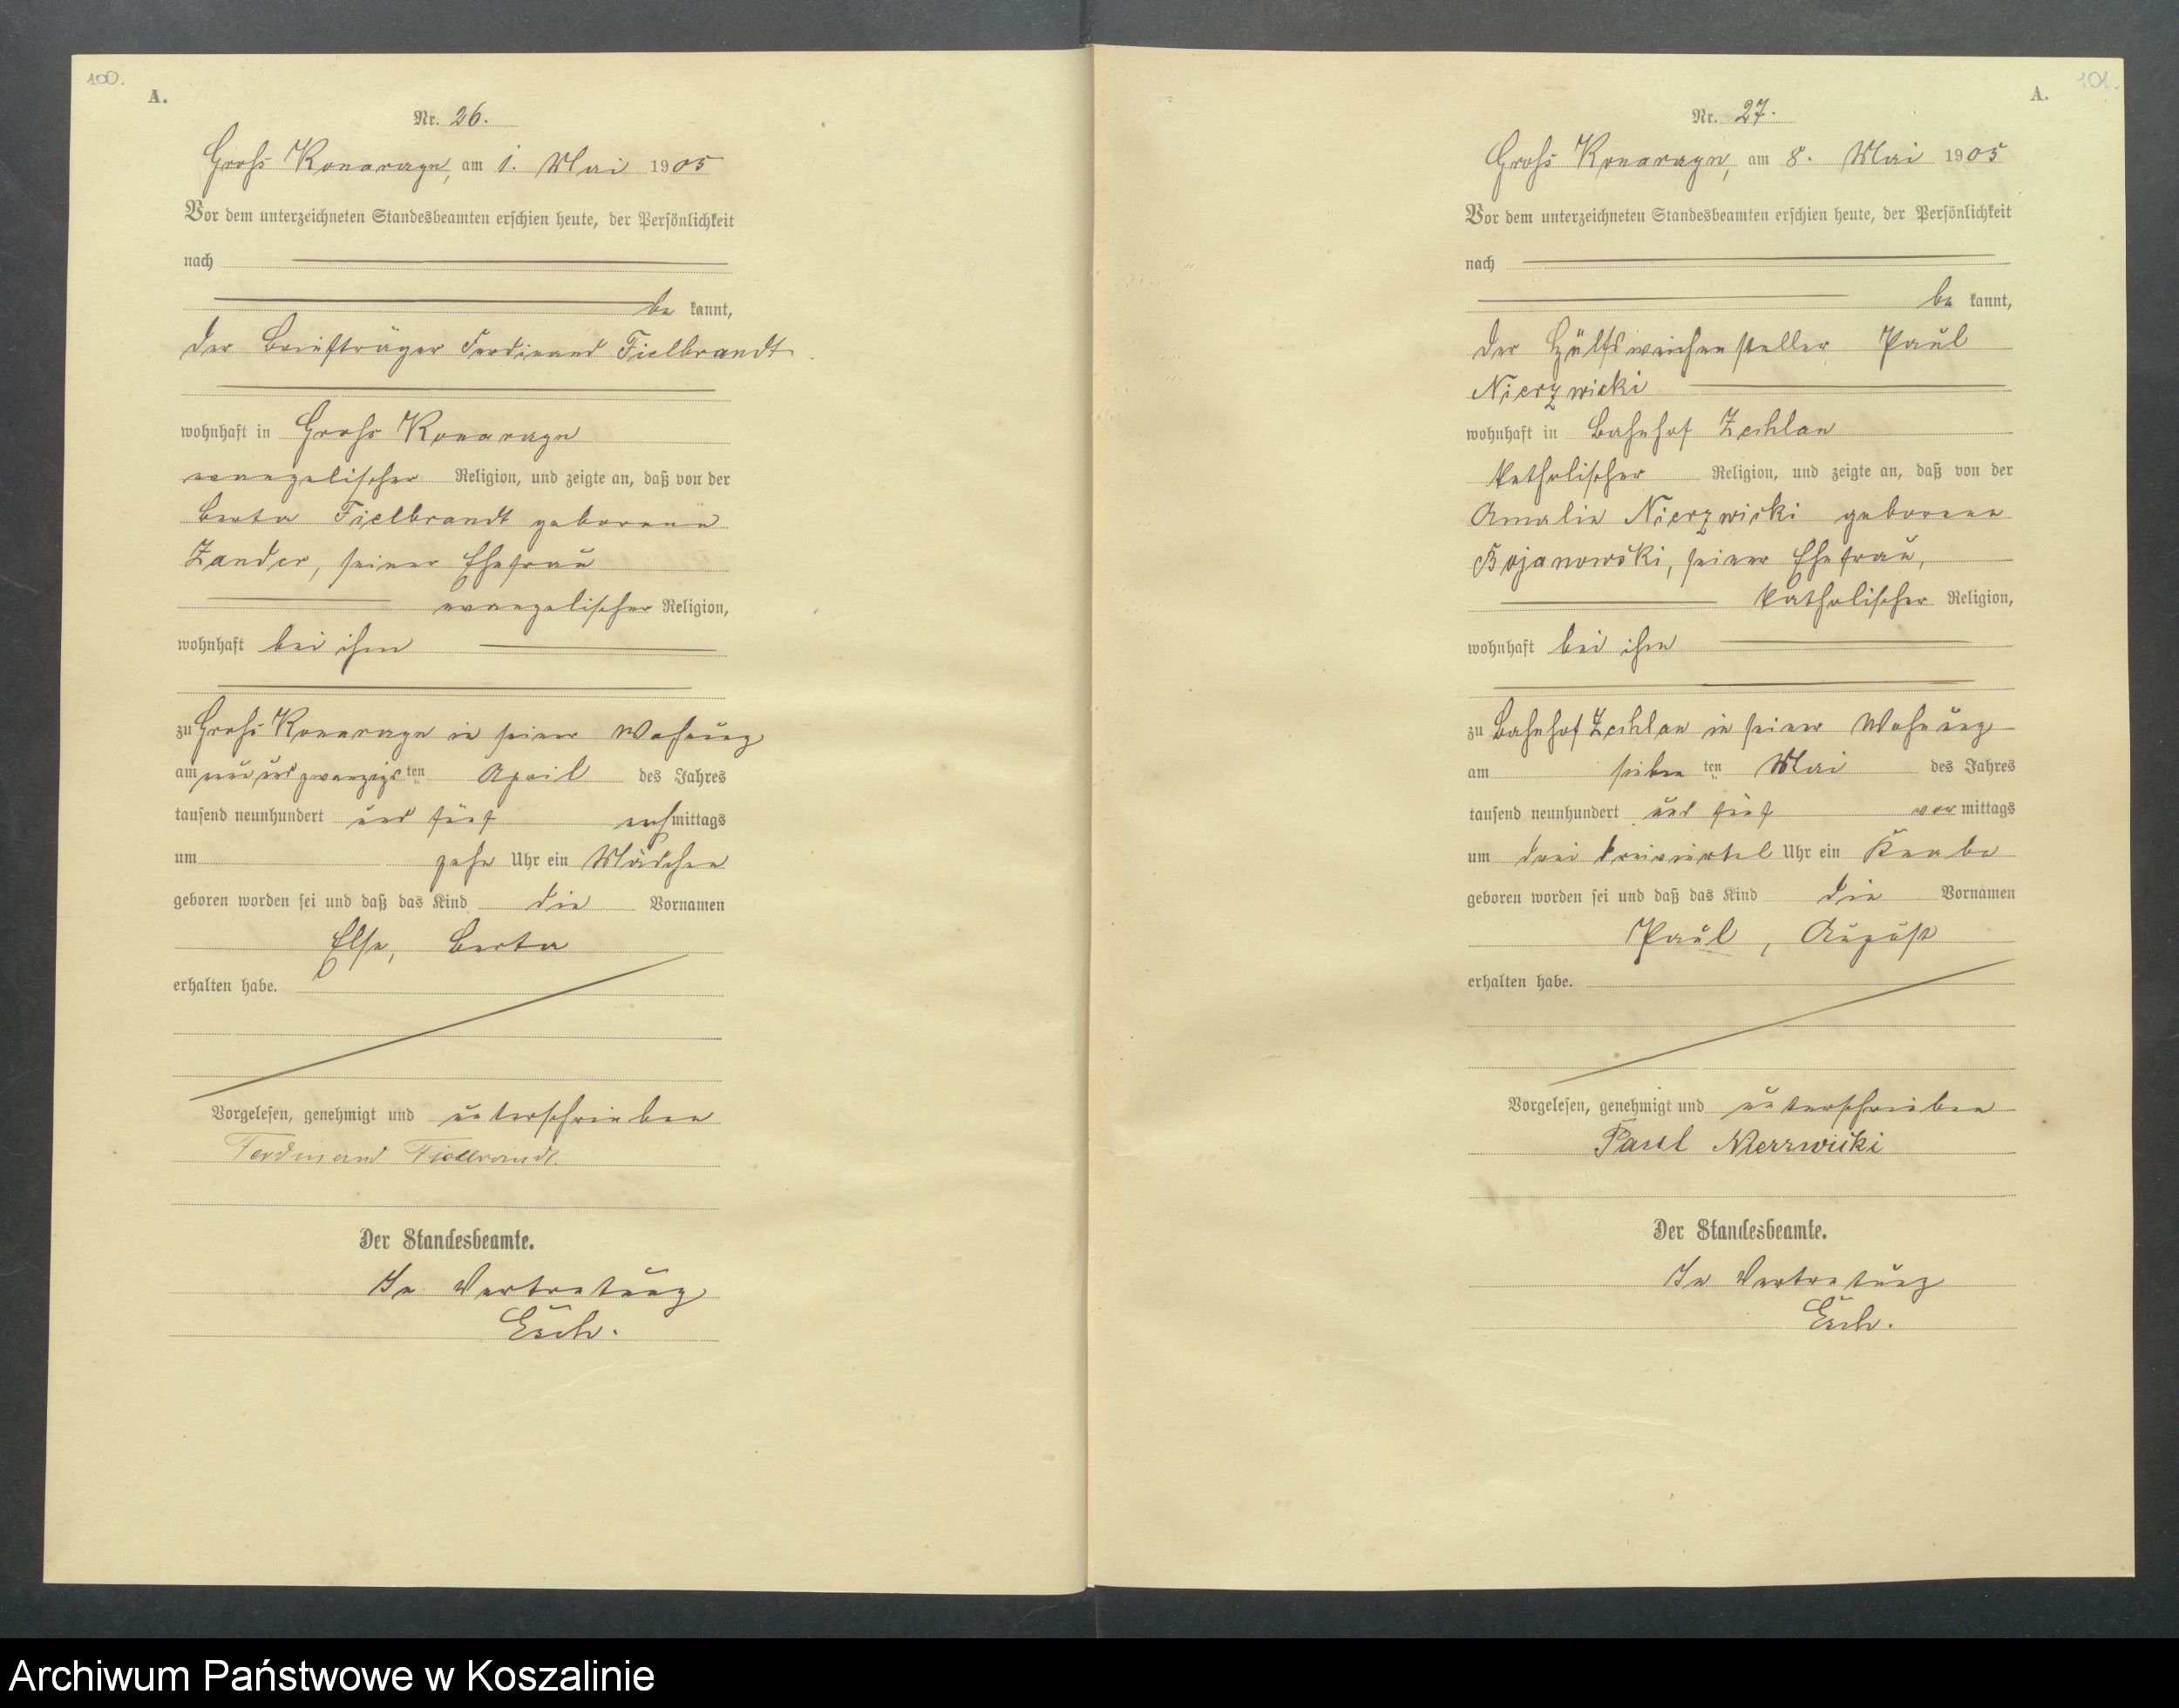 100.
A.
Nr. 26.
Groß Konarczyn, am 1. Mai 1905
Vor dem unterzeichneten Standesbeamten erschien heute, der Persönlichkeit
nach
be kannt,
der Briefträger Ferdinand Fielbrandt
wohnhaft in Groß Konarczyn
evangelischer Religion, und zeigte an, daß von der
Berta Fielbrandt geborene
Zander, seiner Ehefrau
evangelischer Religion,
wohnhaft bei ihm
zu Groß Konarczyn in seiner Wohnung
am neunundzwanzigsten April des Jahres
tausend neunhundert und fünf nachmittags
um zehn Uhr ein Mädchen
geboren worden sei und daß das Kind die Vornamen
Else, Berta
erhalten habe.
Vorgelesen, genehmigt und unterschrieben
Ferdinand Fielbrandt.
Der Standesbeamte.
In Vertretung
Esch.
101.
A.
Nr. 27.
Groß Konarczyn, am 8. Mai 1905
Vor dem unterzeichneten Standesbeamten erschien heute, der Persönlichkeit
nach
be kannt,
der Hülfsweichensteller Paul
Nierzwicki
wohnhaft in Bahnhof Zechlau
katholischer Religion, und zeigte an, daß von der
Amalie Nierzwicki geborene
Bojanowski, seiner Ehefrau,
katholischer Religion,
wohnhaft bei ihm
zu Bahnhof Zechlau in seiner Wohnung
am sieben ten Mai des Jahres
tausend neunhundert und fünf vormittags
um drei dreiviertel Uhr ein Knabe
geboren worden sei und daß das Kind die Vornamen
Paul, August
erhalten habe.
Vorgelesen, genehmigt und unterschrieben
Paul Nierzwicki
Der Standesbeamte.
In Vertretung
Esch.
Archiwum Państwowe w Koszalinie